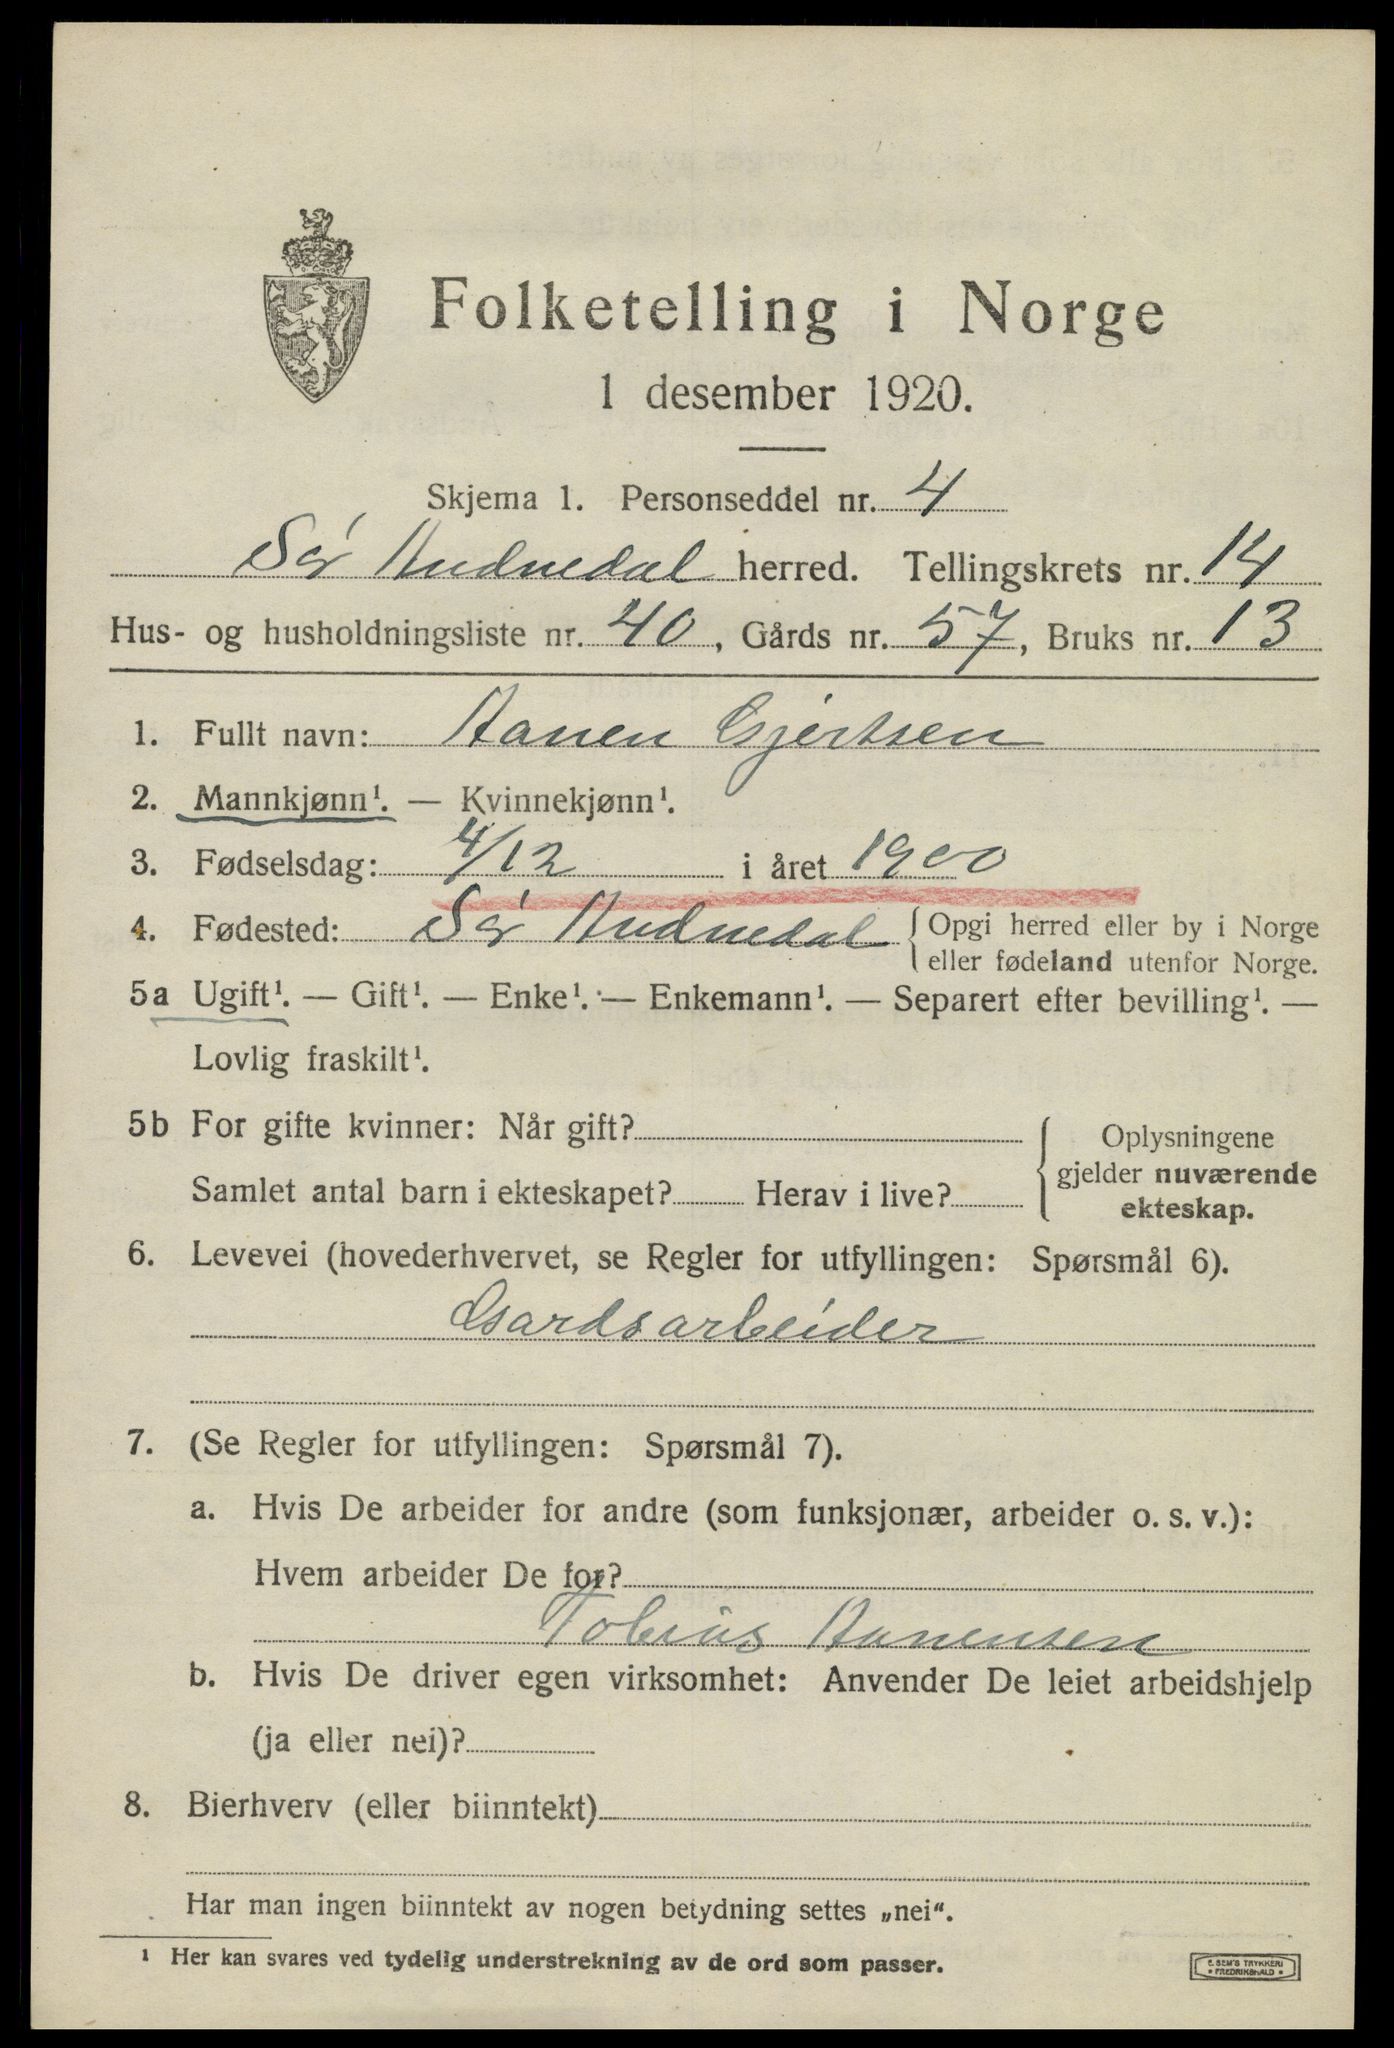 Folketelling i Norge
1 desember 1920.
Skjema 1. Personseddel nr. 4
Sør Audnedal herred. Tellingskrets nr. 14
Hus- og husholdningsliste nr. 40, Gårds nr. 57, Bruks nr. 13
1. Fullt navn: Aanen Gjertsen
2. Mannkjønn¹. — Kvinnekjønn¹.
3. Fødselsdag: 4/12 i året 1900
4. Fødested: Sør Audnedal { Opgi herred eller by i Norge
eller fødeland utenfor Norge.
5a Ugift¹. — Gift¹. — Enke¹. — Enkemann¹. — Separert efter bevilling¹. —
Lovlig fraskilt¹.
5b For gifte kvinner: Når gift?
Samlet antal barn i ekteskapet? Herav i live?
{ Oplysningene
gjelder nuværende
ekteskap.
6. Levevei (hovederhvervet, se Regler for utfyllingen: Spørsmål 6).
Gardsarbeider
7. (Se Regler for utfyllingen: Spørsmål 7).
a. Hvis De arbeider for andre (som funksjonær, arbeider o. s. v.):
Hvem arbeider De for?
Tobias Aanensen
b. Hvis De driver egen virksomhet: Anvender De leiet arbeidshjelp
(ja eller nei)?
8. Bierhverv (eller biinntekt)
Har man ingen biinntekt av nogen betydning settes „nei“.
¹ Her kan svares ved tydelig understrekning av de ord som passer.
E. SEM'S TRYKKERI
* FREDRIKSHALD *